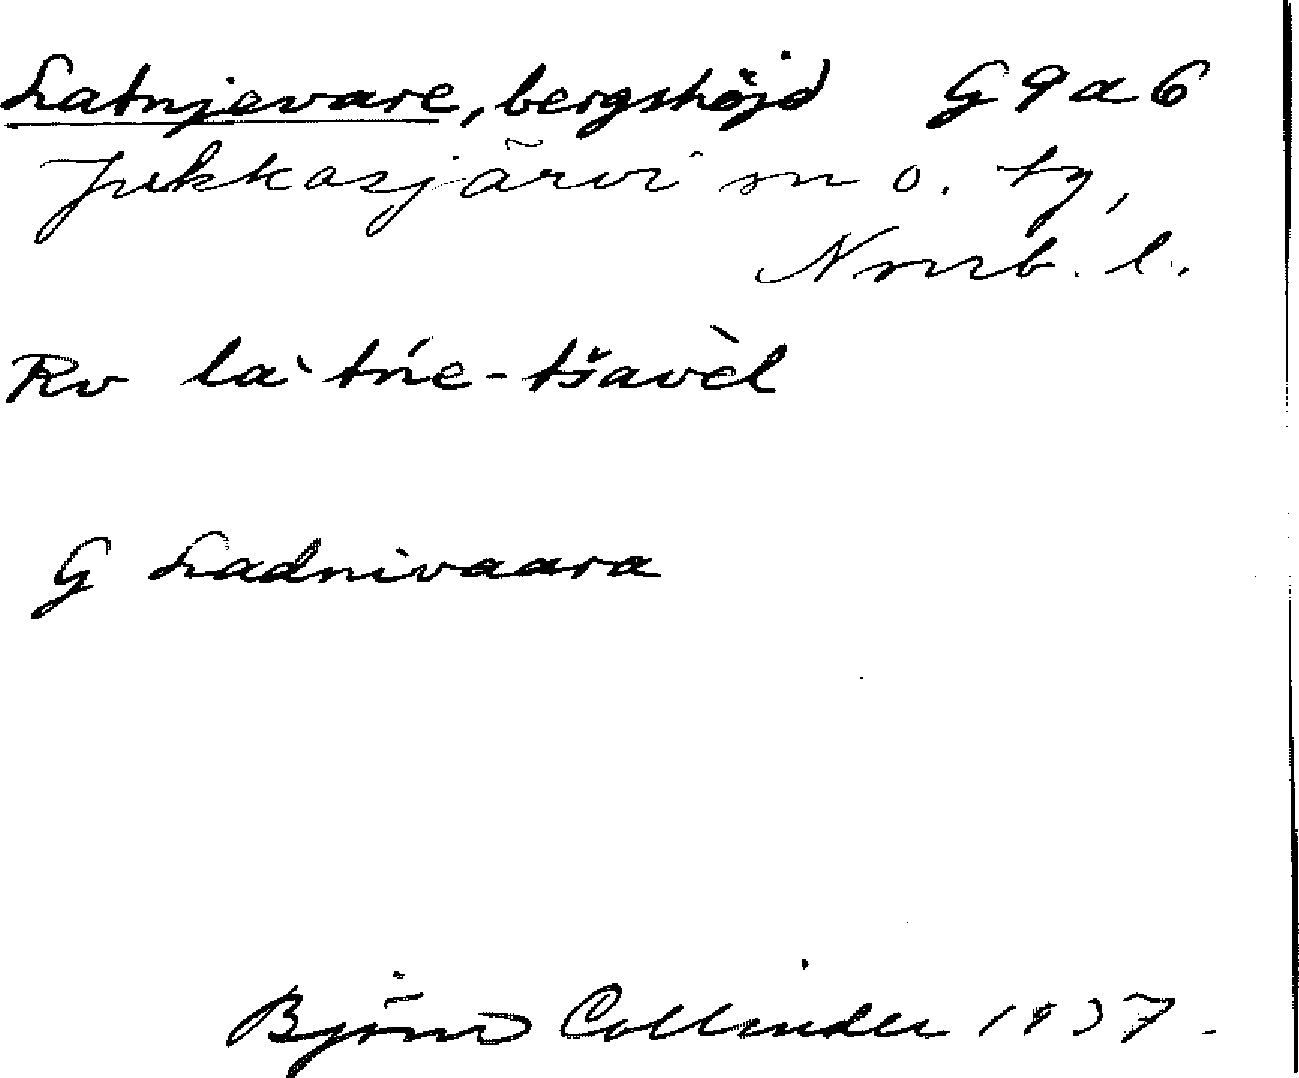 Latnjavare, bergshöjd G 9 a 6
Jukkasjärvi sn o. tg,
Nmrb. l.
Rv la`tńe-tšavèl
G Ladnivaara
Björn Collinder 1937.